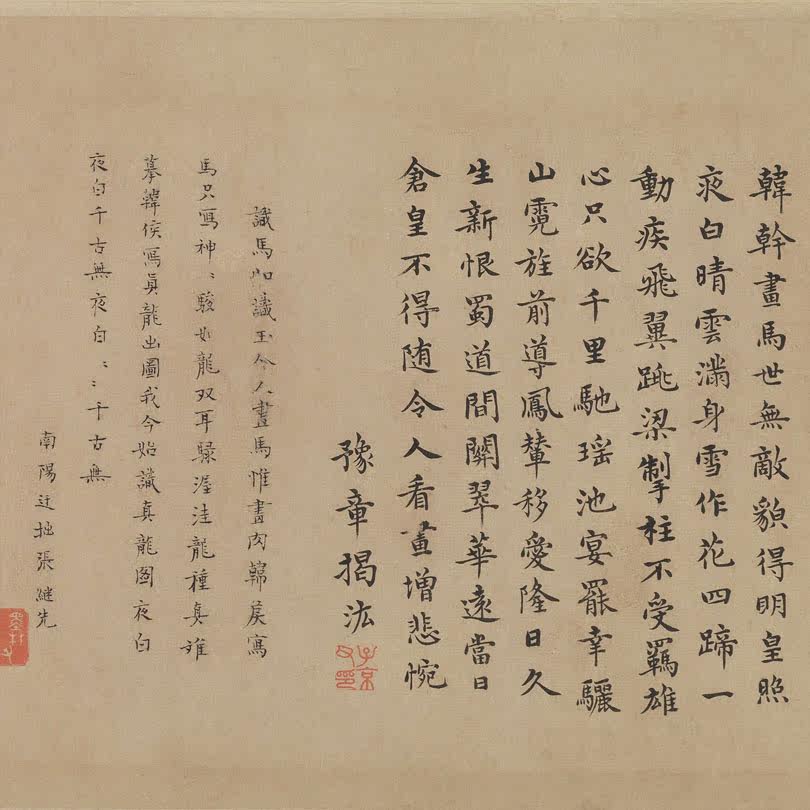 韓幹畫馬世無敵貌得明皇照
夜白晴雲滿身雪作花四蹄一
動疾飛翼跳梁掣柱不受羈雄
心只欲千里馳瑶池宴罷幸驪
山霓旌前導鳳輦移愛隆日久
生新恨蜀道間關翠華遠當日
倉皇不得随令人看畫增悲惋
豫章揭汯
子京父印
識馬如識玉今人畫馬惟畫肉韓侯寫
馬只寫神〻駿如龍双耳騄渥洼龍種真難
摹韓侯寫真龍出圖我今始識真龍圖夜白
夜白千古無夜白〻〻千古無
南陽迂拙張継先